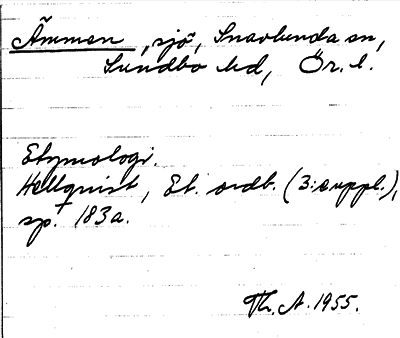 Ämmen, sjö, Snavlunda sn,
Sundbo hd, Ör. l.
Etymologi.
Hellquist, Et. ordb. (3: suppl.),
sp. 183a.
Th. A. 1955.